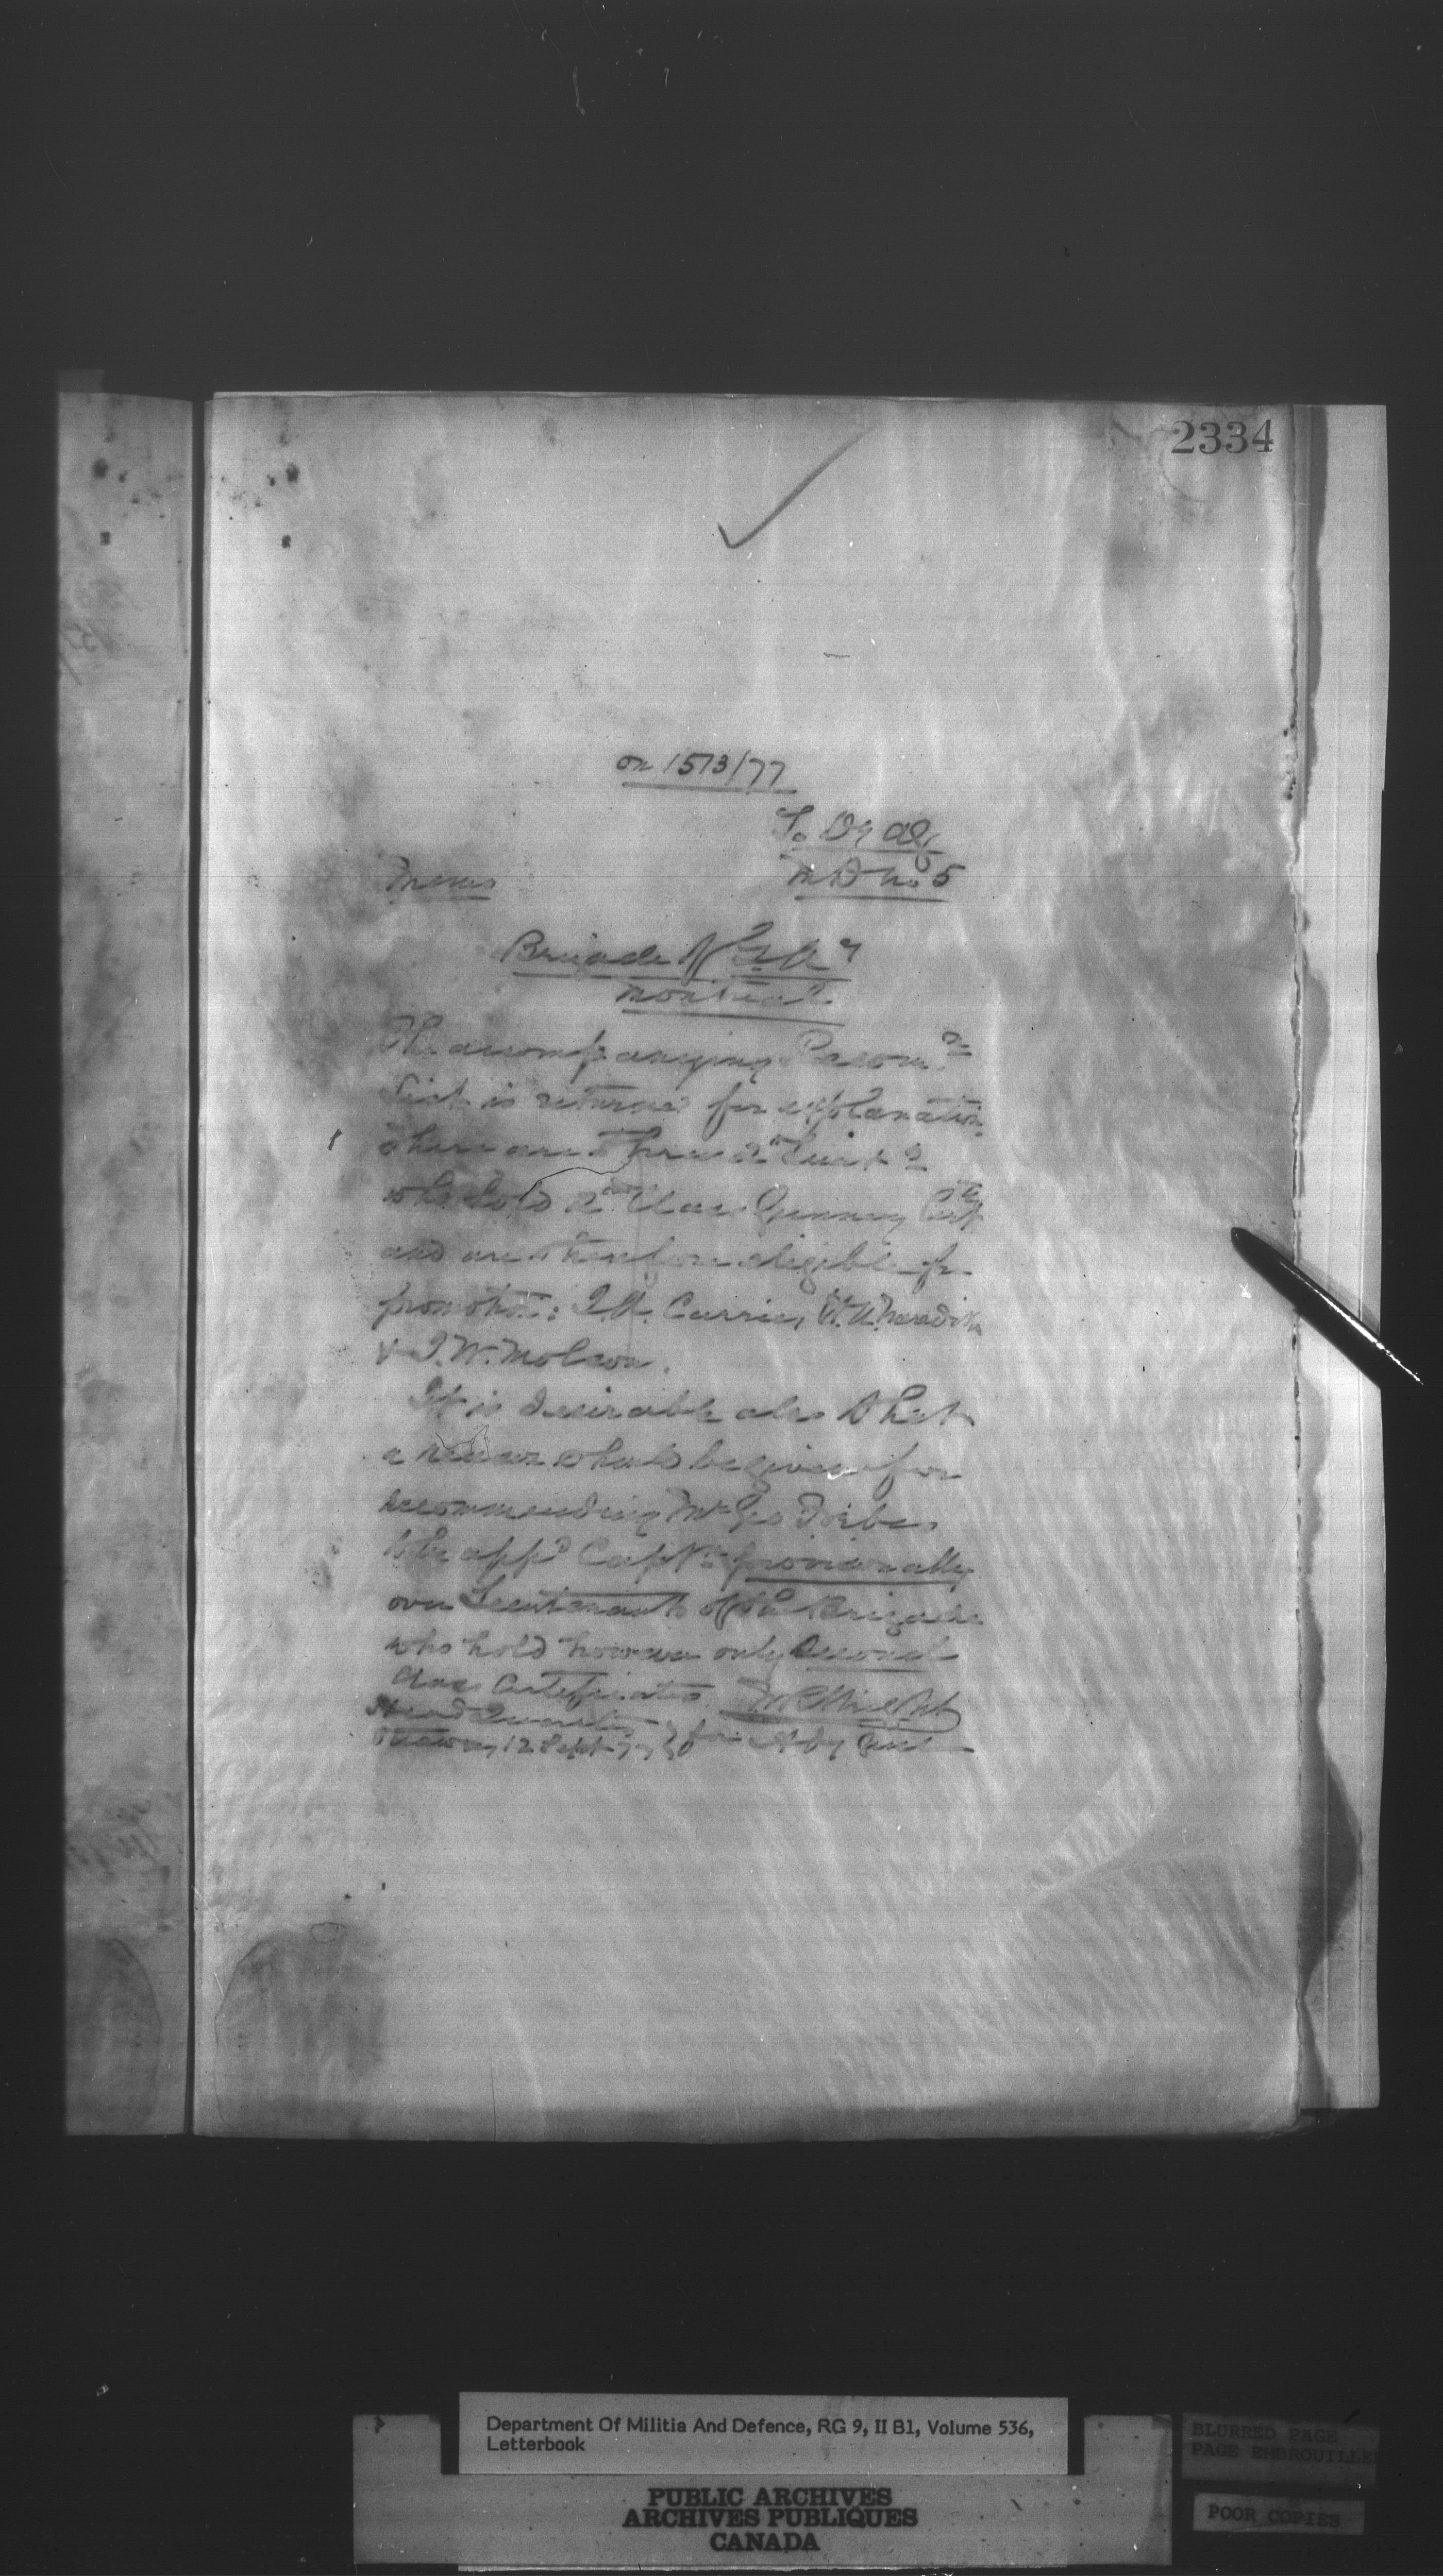 2334
on 1513/77
To Dy AG
M D No 5
Memo
Brigade of Gn Ay
Montreal
The accompanying
List is returned for explanation
there are three 2n Lieuts
who hold 2nd Class Gunnery Certs
and are therefore eligible for
promotion: Currie, Meredith
& J. W. Molson.
It is desirable also that
a reason should be given for
recommending Mr Geo Forbes
to be appd Captn provisionally
over Lieutenants of the Brigade
who hold however only Second
Class Certificates.
Head Quarters
Ottawa, 12 Sept 77 } for Adj Genl
Department Of Militia And Defence, RG 9, II B1, Volume 536,
Letterbook
PUBLIC ARCHIVES
ARCHIVES PUBLIQUES
CANADA
BLURRED PAGE
PAGE EMBROUILLE
POOR COPIES